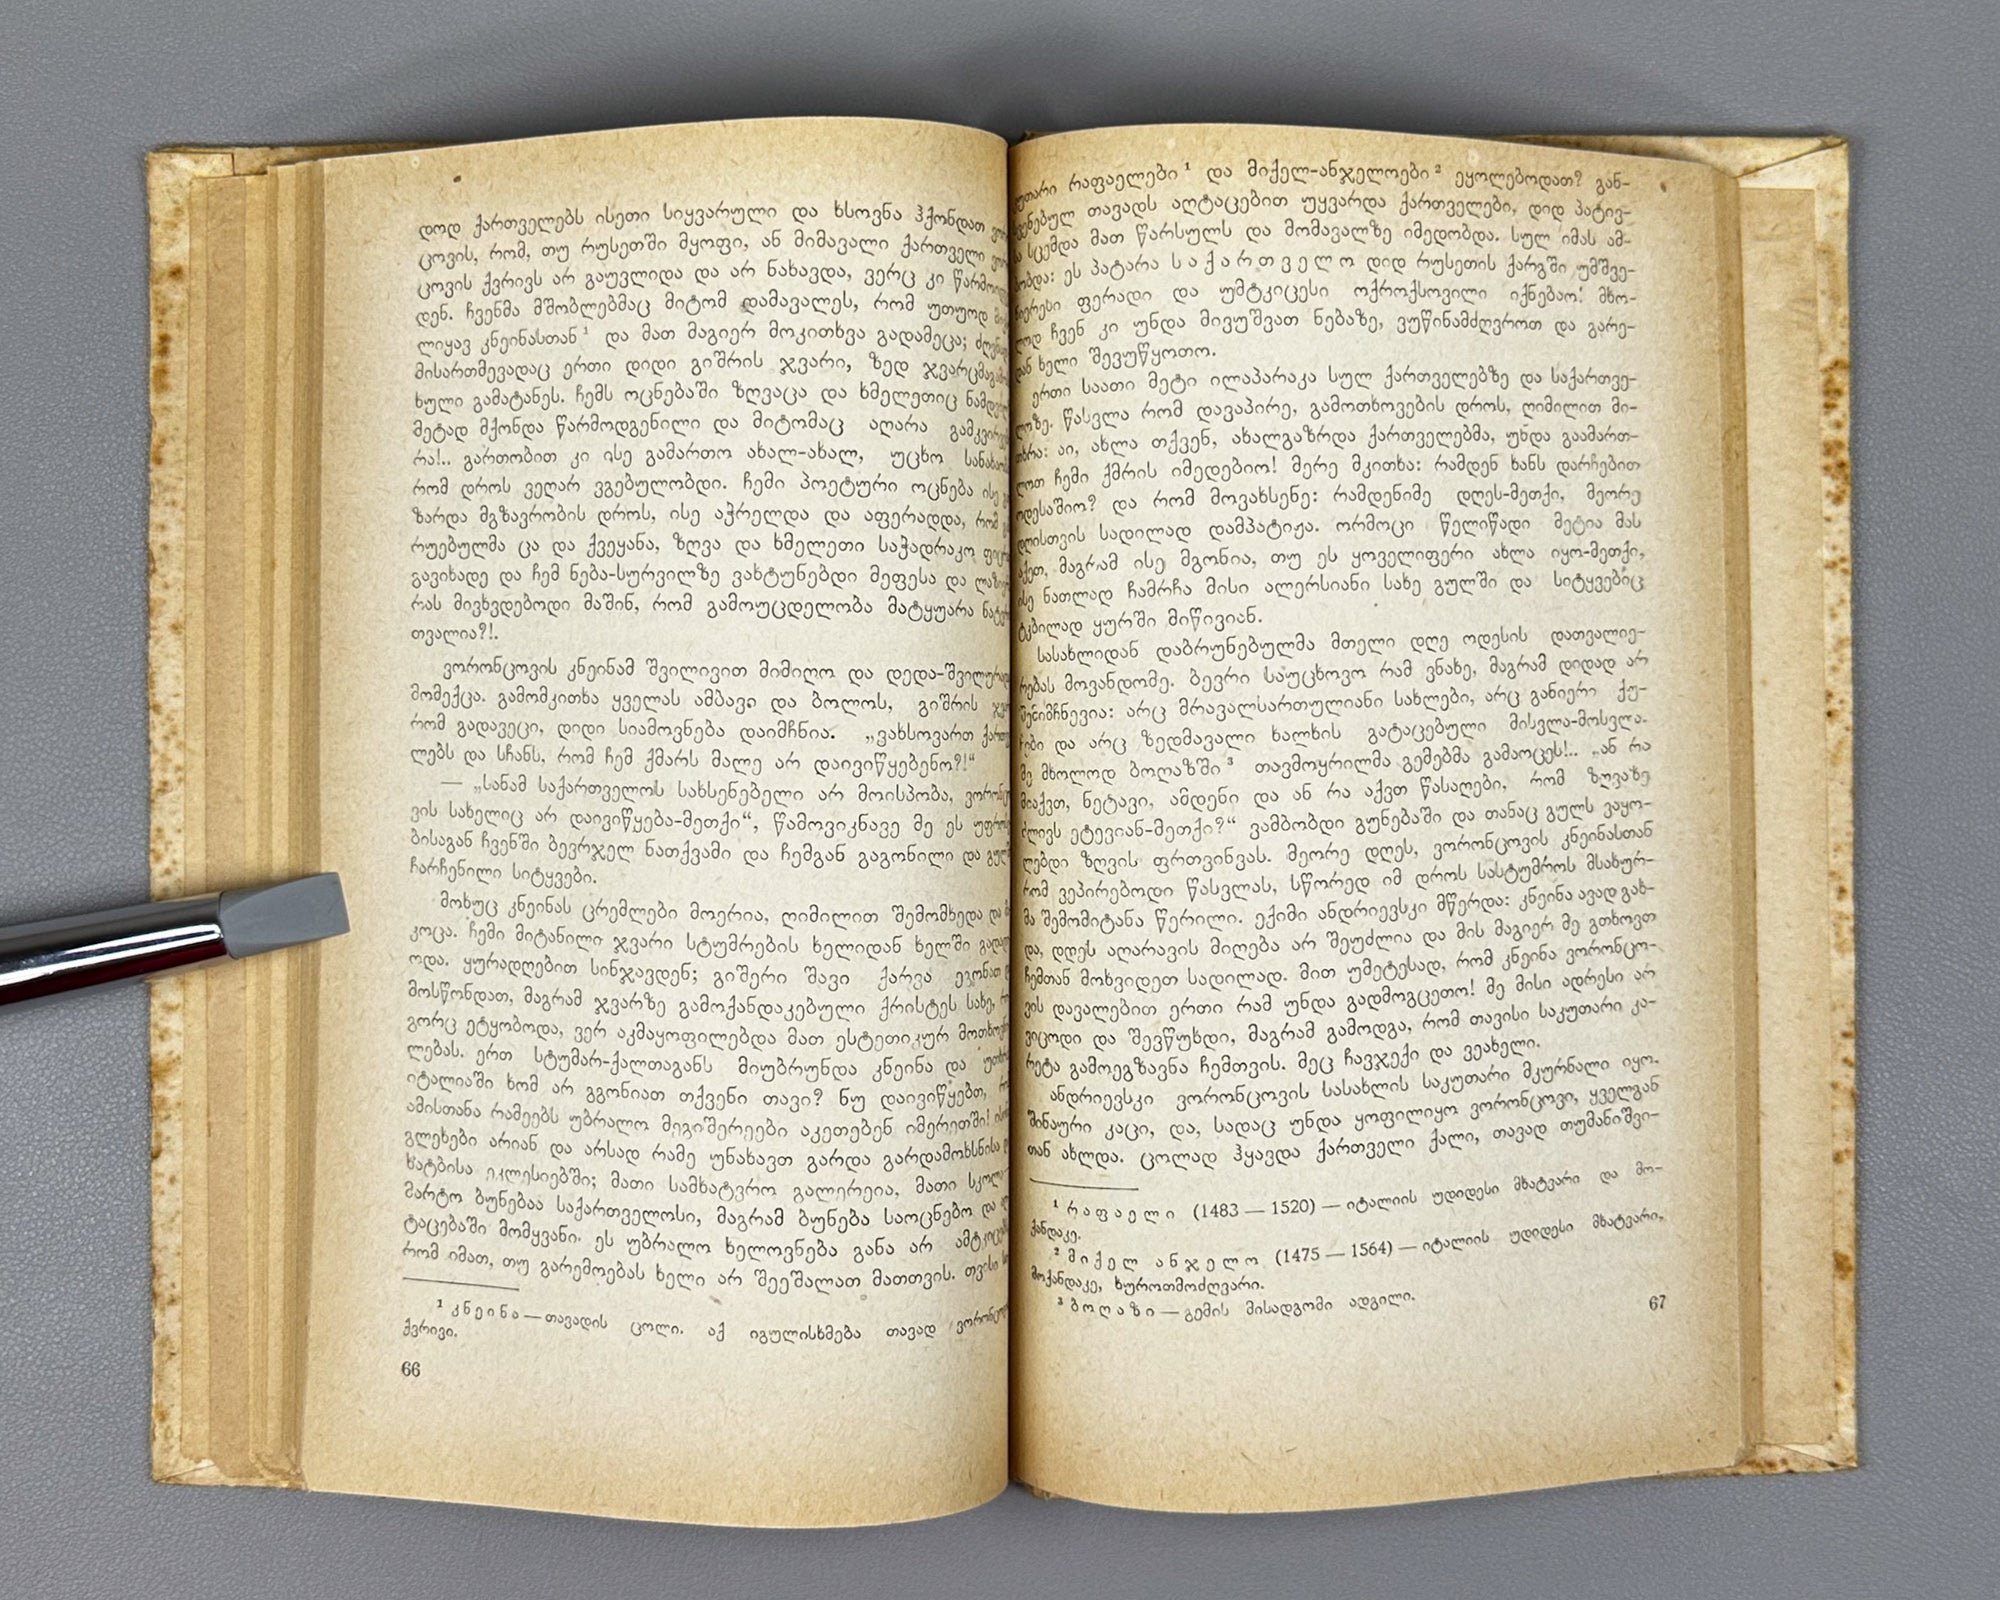 დოდ ქართველებს ისეთი სიყვარული და ხსოვნა ჰქონდათ
ცოვის, რომ, თუ რუსეთში მყოფი, ან მიმავალი ქართველი
ცოვის ქვრივს არ გაუვლიდა და არ ნახავდა, ვერც კი
დენ. ჩვენმა მშობლებმაც მიტომ დამავალეს, რომ უთუოდ
ლიყავ კნეინასთან¹ და მათ მაგიერ მოკითხვა გადამეცა;
მისართმევადაც ერთი დიდი გიშრის ჯვარი, ზედ
ხული გამატანეს. ჩემს ოცნებაში ზღვაცა და ხმელეთიც
მეტად მქონდა წარმოდგენილი და მიტომაც აღარა
რა!.. გართობით კი ისე გამართო ახალ-ახალ, უცხო
რომ დროს ვეღარ ვგებულობდი. ჩემი პოეტური ოცნება ისე
ზარდა მგზავრობის დროს, ისე აჭრელდა და აფერადდა, რომ
რუებულმა ცა და ქვეყანა, ზღვა და ხმელეთი საჭადრაკო
გავიხადე და ჩემ ნება-სურვილზე ვახტუნებდი მეფესა და
რას მივხვდებოდი მაშინ, რომ გამოუცდელობა მატყუარა
თვალია?!.
ვორონცოვის კნეინამ შვილივით მიმიღო და დედა-შვილურად
მომექცა. გამომკითხა ყველას ამბავი და ბოლოს, გიშრის
რომ გადავეცი, დიდი სიამოვნება დაიმჩნია. „ვახსოვართ
ლებს და სჩანს, რომ ჩემ ქმარს მალე არ დაივიწყებენო?!“
— „სანამ საქართველოს სახსენებელი არ მოისპობა,
ვის სახელიც არ დაივიწყება-მეთქი“, წამოვიკნავე მე ეს
ბისაგან ჩვენში ბევრჯელ ნათქვამი და ჩემგან გაგონილი და
ჩარჩენილი სიტყვები.
მოხუც კნეინას ცრემლები მოერია, ღიმილით შემომხედა და
კოცა. ჩემი მიტანილი ჯვარი სტუმრების ხელიდან ხელში
ოდა. ყურადღებით სინჯავდენ; გიშერი შავი ქარვა ეგონათ
მოსწონდათ, მაგრამ ჯვარზე გამოქანდაკებული ქრისტეს სახე,
გორც ეტყობოდა, ვერ აკმაყოფილებდა მათ ესტეთიკურ
ლებას. ერთ სტუმარ-ქალთაგანს მიუბრუნდა კნეინა და
იტალიაში ხომ არ გგონიათ თქვენი თავი? ნუ დაივიწყებთ,
ამისთანა რამეებს უბრალო მეგიშერეები აკეთებენ იმერეთში!
გლეხები არიან და არსად რამე უნახავთ გარდა გარდამოხსნისა
ხატბისა ეკლესიებში; მათი სამხატვრო გალერეია, მათი
მარტო ბუნებაა საქართველოსი, მაგრამ ბუნება საოცნებო და
ტაცებაში მომყვანი. ეს უბრალო ხელოვნება განა არ
რომ იმათ, თუ გარემოებას ხელი არ შეეშალათ მათთვის. თვისი
¹ კნეინა — თავადის ცოლი. აქ იგულისხმება თავად
ქვრივი.
66
რაფაელები¹ და მიქელ-ანჯელოები² ეყოლებოდათ? გან-
თავადს აღტაცებით უყვარდა ქართველები, დიდ პატივ-
სცემდა მათ წარსულს და მომავალზე იმედობდა. სულ იმას ამ-
ბობდა: ეს პატარა საქართველო დიდ რუსეთის ქარგში უმშვე-
ნიერესი ფერადი და უმტკიცესი ოქროქსოვილი იქნებაო! მხო-
ლოდ ჩვენ კი უნდა მივუშვათ ნებაზე, ვუწინამძღვროთ და გარე-
დან ხელი შევუწყოთო.
ერთი საათი მეტი ილაპარაკა სულ ქართველებზე და საქართვე-
ლოზე. წასვლა რომ დავაპირე, გამოთხოვების დროს, ღიმილით მი-
თხრა: აი, ახლა თქვენ, ახალგაზრდა ქართველებმა, უნდა გაამართ-
ლოთ ჩემი ქმრის იმედებიო! მერე მკითხა: რამდენ ხანს დარჩებით
ოდესაშიო? და რომ მოვახსენე: რამდენიმე დღეს-მეთქი, მეორე
დღისთვის სადილად დამპატიჟა. ორმოცი წელიწადი მეტია მას
აქეთ, მაგრამ ისე მგონია, თუ ეს ყოველიფერი ახლა იყო-მეთქი,
ისე ნათლად ჩამრჩა მისი ალერსიანი სახე გულში და სიტყვებიც
ტკბილად ყურში მიწივიან.
სასახლიდან დაბრუნებულმა მთელი დღე ოდესის დათვალიე-
რებას მოვანდომე. ბევრი საუცხოვო რამ ვნახე, მაგრამ დიდად არ
შემიმჩნევია: არც მრავალსართულიანი სახლები, არც განიერი ქუ-
ჩები და არც ზედმავალი ხალხის გატაცებული მისვლა-მოსვლა.
მე მხოლოდ ბოღაზში³ თავმოყრილმა გემებმა გამაოცეს!.. „ან რა
მიაქვთ, ნეტავი, ამდენი და ან რა აქვთ წასაღები, რომ ზღვაზე
ძლივს ეტევიან-მეთქი?“ ვამბობდი გუნებაში და თანაც გულს ვაყო-
ლებდი ზღვის ფრთვინვას. მეორე დღეს, ვორონცოვის კნეინასთან
რომ ვეპირებოდი წასვლას, სწორედ იმ დროს სასტუმროს მსახურ-
მა შემომიტანა წერილი. ექიმი ანდრიევსკი მწერდა: კნეინა ავად გახ-
და, დღეს აღარავის მიღება არ შეუძლია და მის მაგიერ მე გთხოვთ
ჩემთან მოხვიდეთ სადილად. მით უმეტესად, რომ კნეინა ვორონცო-
ვის დავალებით ერთი რამ უნდა გადმოგცეთო! მე მისი ადრესი არ
ვიცოდი და შევწუხდი, მაგრამ გამოდგა, რომ თავისი საკუთარი კა-
რეტა გამოეგზავნა ჩემთვის. მეც ჩავჯექი და ვეახელი.
ანდრიევსკი ვორონცოვის სასახლის საკუთარი მკურნალი იყო.
შინაური კაცი, და, სადაც უნდა ყოფილიყო ვორონცოვი, ყველგან
თან ახლდა. ცოლად ჰყავდა ქართველი ქალი, თავად თუმანიშვი-
¹ რაფაელი (1483 — 1520) — იტალიის უდიდესი მხატვარი და მო-
ქანდაკე.
² მიქელ ანჯელო (1475 — 1564) — იტალიის უდიდესი მხატვარი,
მოქანდაკე, ხუროთმოძღვარი.
³ ბოღაზი — გემის მისადგომი ადგილი.
67